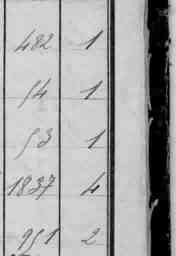 482 1
54 1
53 1
1837 4
951 2